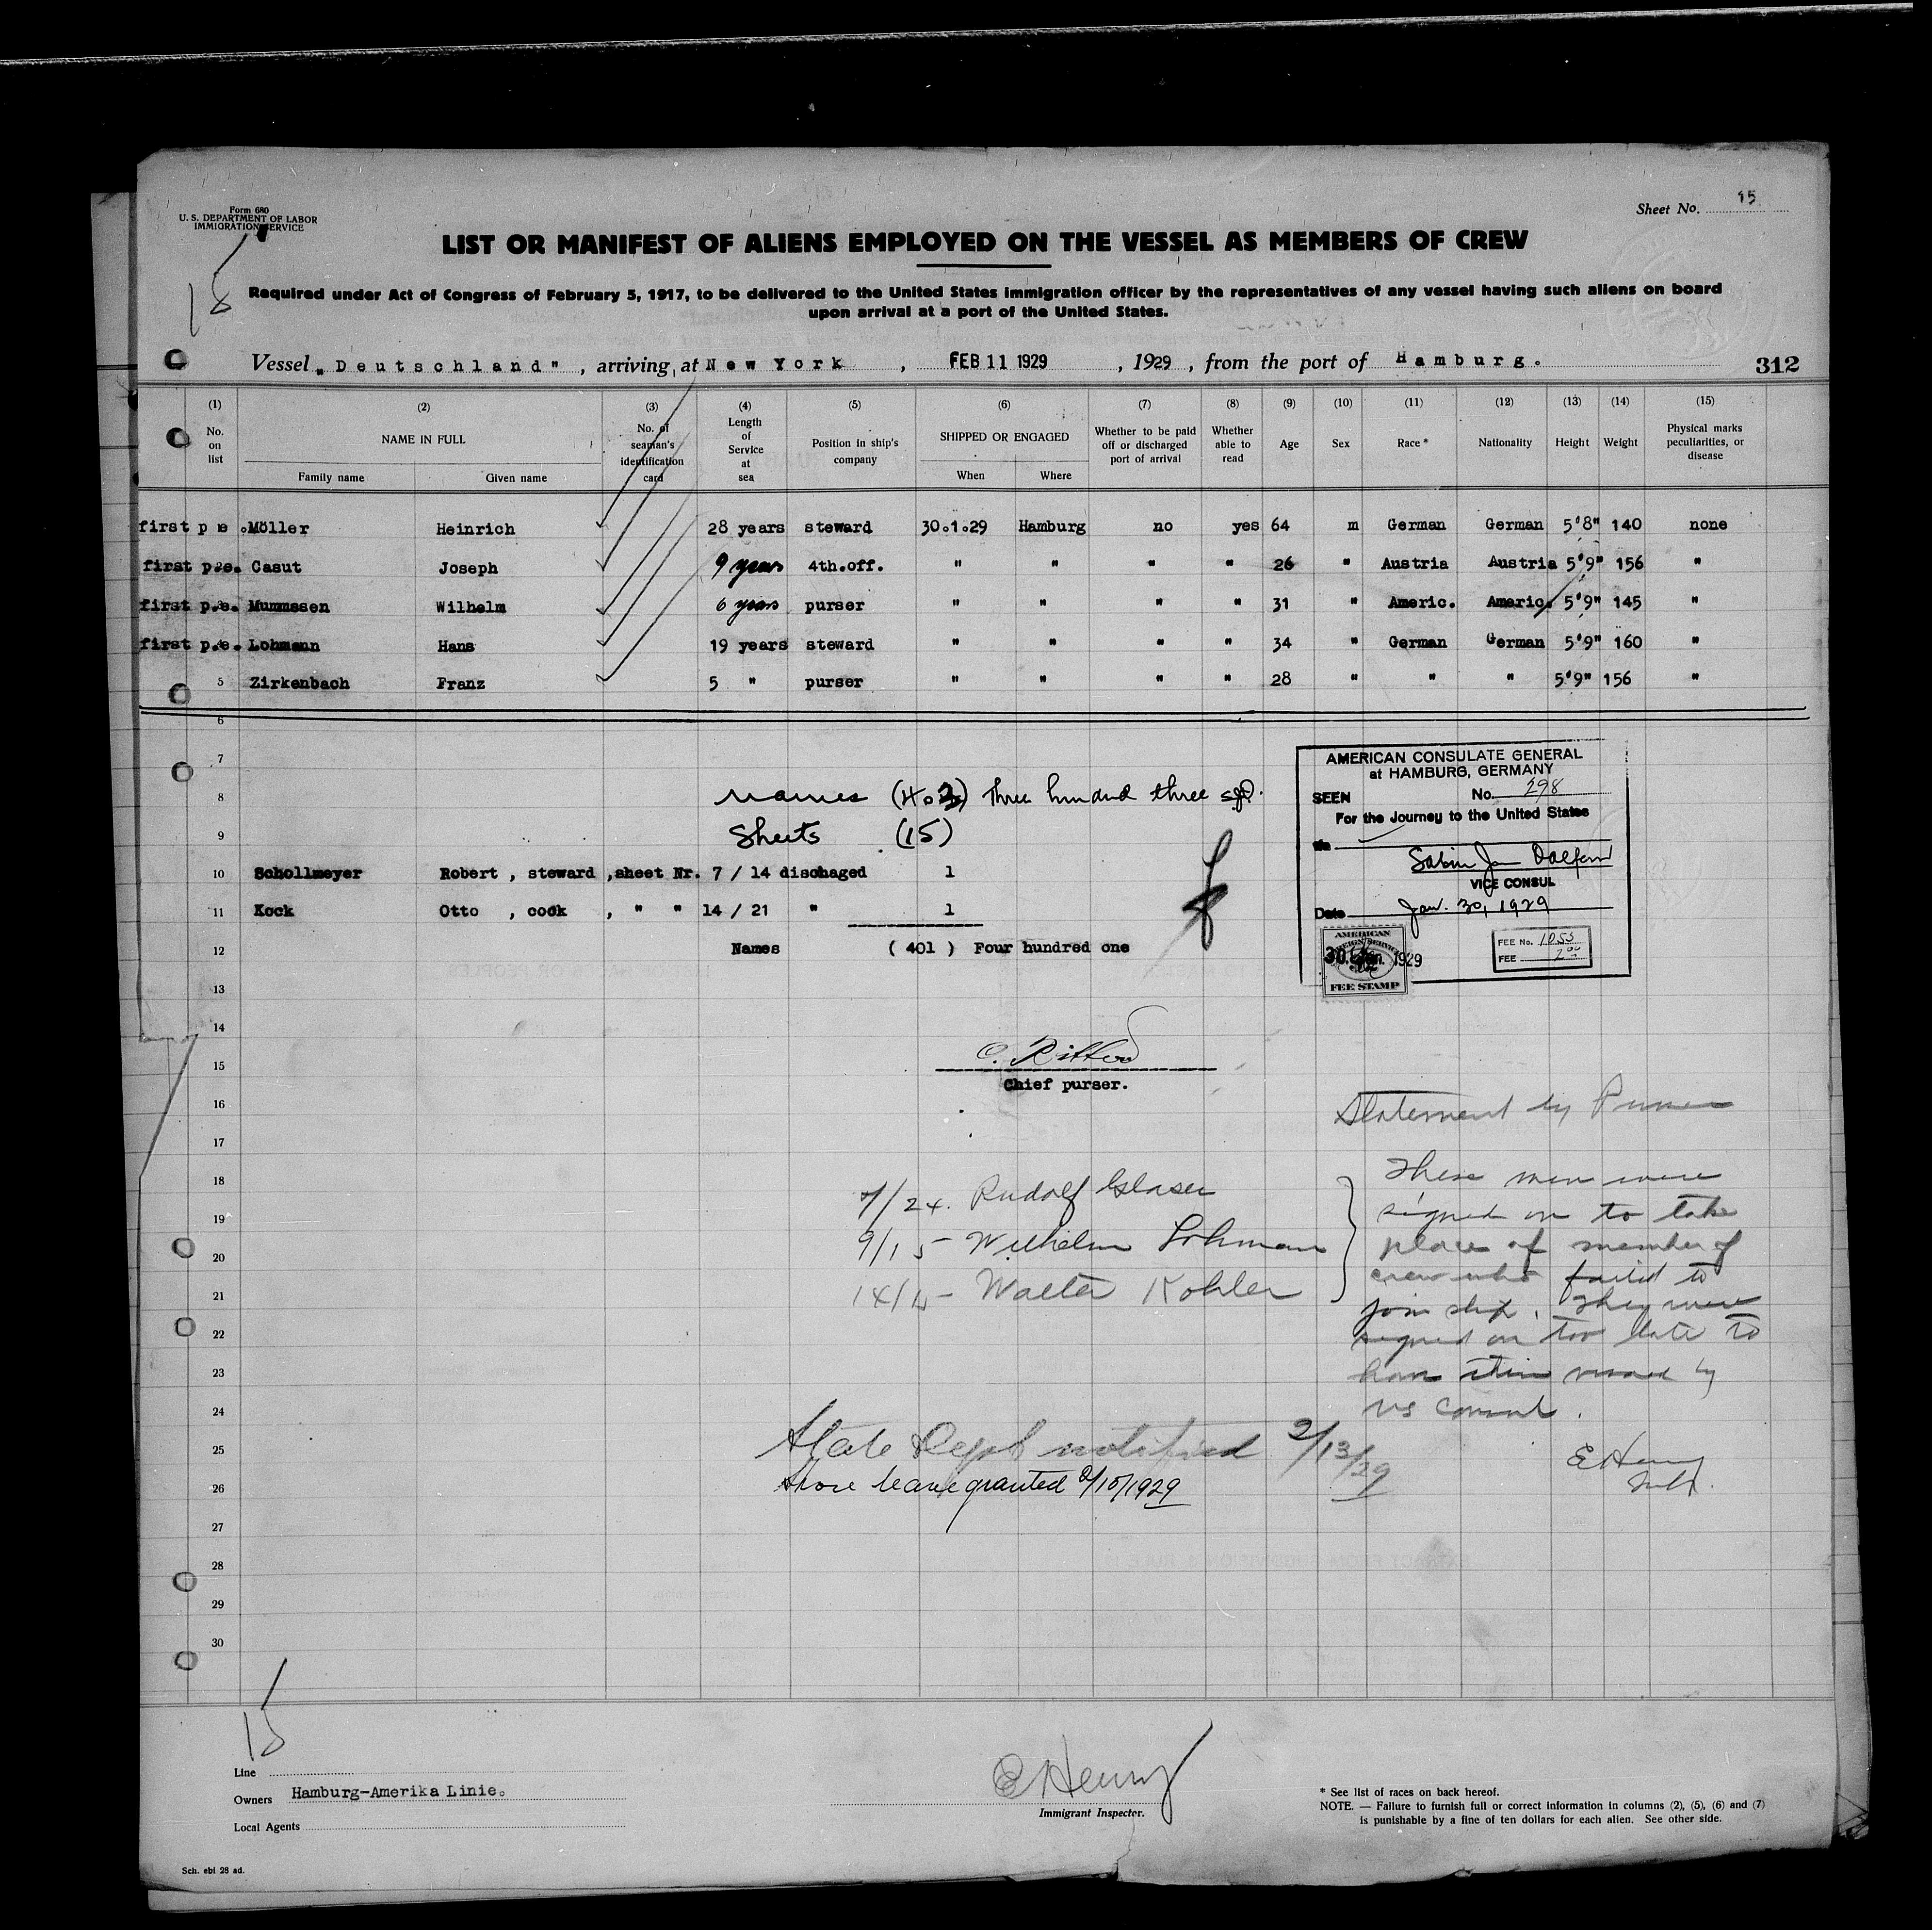 Form 680
U. S. DEPARTMENT OF LABOR
IMMIGRATION SERVICE
Sheet No. 15
LIST OR MANIFEST OF ALIENS EMPLOYED ON THE VESSEL AS MEMBERS OF CREW
Required under Act of Congress of February 5, 1917, to be delivered to the United States immigration officer by the representatives of any vessel having such aliens on board
upon arrival at a port of the United States.
Vessel „Deutschland", arriving at New York, FEB 11 1929, 1929, from the port of Hamburg. 312
(1) No. on list
(2) NAME IN FULL Family name Given name
(3) No. of seaman's identification card
(4) Length of Service at sea
(5) Position in ship's company
(6) SHIPPED OR ENGAGED When Where
(7) Whether to be paid off or discharged port of arrival
(8) Whether able to read
(9) Age
(10) Sex
(11) Race *
(12) Nationality
(13) Height
(14) Weight
(15) Physical marks peculiarities, or disease
first p e. Möller Heinrich 28 years steward 30.1.29 Hamburg no yes 64 m German German 5'8" 140 none
first p.e. Casut Joseph 9 years 4th.off. " " " " 26 " Austria Austria 5'9" 156 "
first p.e. Mummssen Wilhelm 6 years purser " " " " 31 " Americ. Americ. 5'9" 145 "
first p.e. Lohmann Hans 19 years steward " " " " 34 " German German 5'9" 160 "
5 Zirkenbach Franz 5 " purser " " " " 28 " " " 5'9" 156 "
6
7
8 Names (403) three hundred three
9 Sheets (15)
10 Schollmeyer Robert , steward ,sheet Nr. 7 / 14 dischaged 1
11 Kock Otto , cook , " " 14 / 21 " 1
12 Names ( 401 ) Four hundred one
AMERICAN CONSULATE GENERAL
at HAMBURG, GERMANY
SEEN No. 298
For the Journey to the United States
VICE CONSUL
Date Jan. 30, 1929
AMERICAN
FOREIGN SERVICE
30. Jan. 1929
FEE STAMP
FEE No. 1055
FEE 2.00
13
14
15 C. Ritter
Chief purser.
16
17
18
19
20
21
22
23
24
25
26
27
28
29
30
Statement by Purser
7/24. Rudolf Glaser
9/15 - Wilhelm Lohman
14/15 - Walter Kohler
These men were
signed on to take
place of member of
crew who failed to
join ship. They were
signed on too late to
have them visaed by
US Consul.
E Henry
State Dept notified 2/13/29
Shore leave granted 2/10/1929
15
Line
Owners Hamburg-Amerika Linie.
Local Agents
E Henry
Immigrant Inspector.
* See list of races on back hereof.
NOTE. — Failure to furnish full or correct information in columns (2), (5), (6) and (7)
is punishable by a fine of ten dollars for each alien. See other side.
Sch. ebl 28 ad.